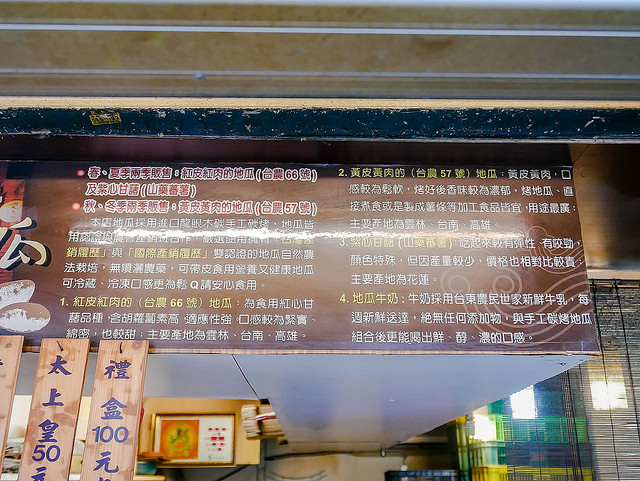 春、夏季兩季販售：紅皮紅肉的地瓜(台農 66 號)
及紫心甘藷(山藥蕃薯)
秋、冬季兩季販售：黃皮黃肉的地瓜(台農 57 號)
本店地瓜採用進口龍眼木碳手工碳烤，地瓜皆
銷履歷」與「國際產銷履歷」雙認證的地瓜自然農
法栽培，無噴灑農藥，可帶皮食用營養又健康地瓜
可冷藏、冷凍口感更為鬆Q請安心食用。
1. 紅皮紅肉的（台農 66 號）地瓜：為食用紅心甘
藷品種，含胡蘿蔔素高，適應性強，口感較為緊實、
綿密，也較甜；主要產地為雲林、台南、高雄。
2. 黃皮黃肉的（台農 57 號）地瓜：黃皮黃肉，口
感較為鬆軟，烤好後香味較為濃郁，烤地瓜、直
接煮食或是製成薯條等加工食品皆宜，用途最廣；
主要產地為雲林、台南、高雄。
3. 紫心甘藷（山藥蕃薯）：吃起來較有彈性，有咬勁，
顏色特殊，但因產量較少，價格也相對比較貴；
主要產地為花蓮。
4. 地瓜牛奶：牛奶採用台東農民世家新鮮牛乳，每
週新鮮送達，絕無任何添加物，與手工碳烤地瓜
組合後更能喝出鮮、醇、濃的口感。
瓜
太上皇50元
禮盒100元